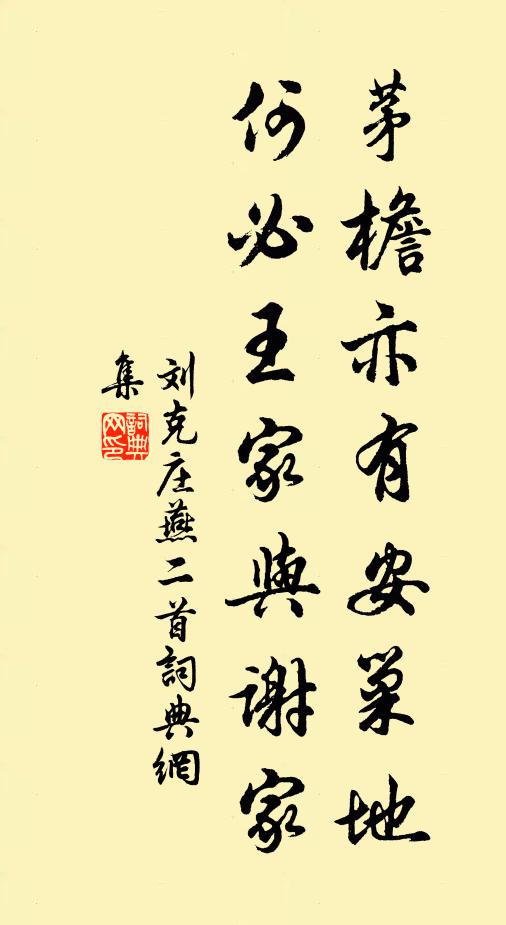 茅檐亦有安巢地
何必王家與谢家
刘克庄燕二首詞典網
集
詞典
网印